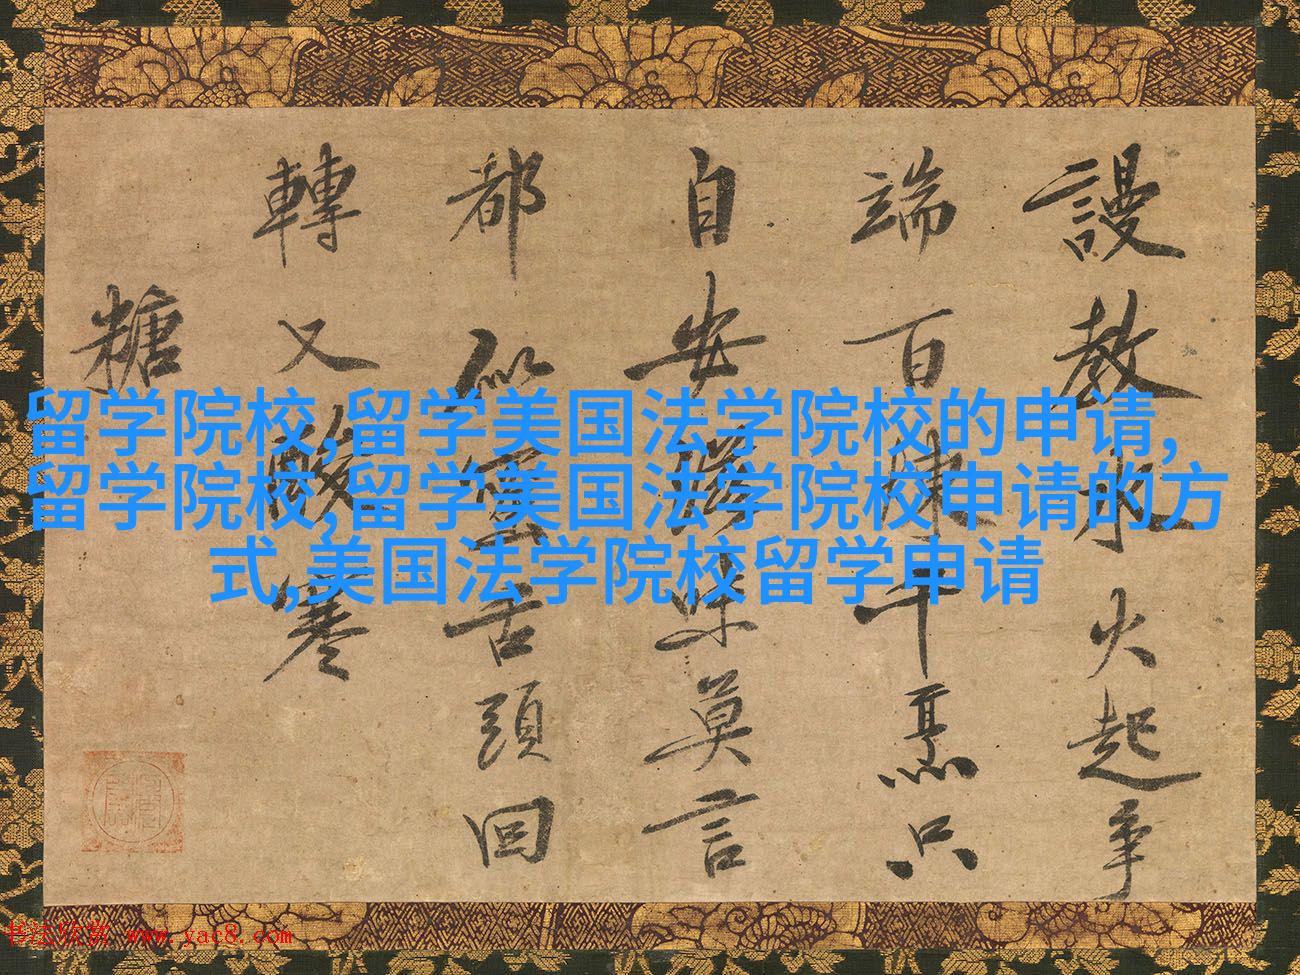 謾教水火起争
端百煉千烹只
自安
味莫言
都似蜜舌頭回
轉又酸寒
糖
留学院校,留学美国法学院校的申请,
留学院校,留学美国法学院校申请的方
式,美国法学院校留学申请
书法欣赏 www.yac8.com